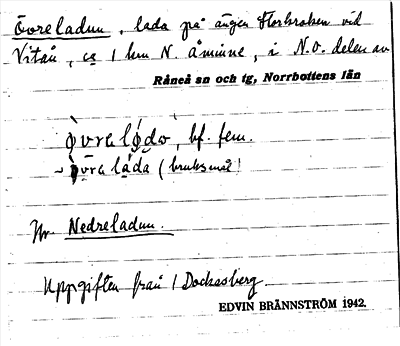 Övreladun, lada på ängen Storkroken vid
Vitån, ca 1 km N. åminne, i N.O. delen av
Råneå sn och tg, Norrbottens län
bf. fem.
(bruksmål)
Jfr. Nedreladun.
Uppgiften från / Dockasberg
EDVIN BRÄNNSTRÖM 1942.